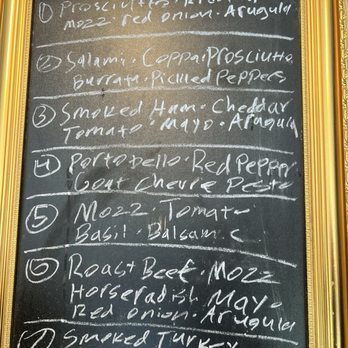 ① Prosciutto
mozz · red onion · Arugula
② Salami · Coppa · Prosciutto
Burrata · Pickled Peppers
③ Smoked Ham · Cheddar
Tomato · Mayo · Arugula
④ Portobello · Red Pepper
Goat Chevre Pesto
⑤ Mozz Tomato
Basil · Balsamic
⑥ Roast Beef · Mozz
Horseradish Mayo
Red Onion · Arugula
⑦ Smoked Turkey